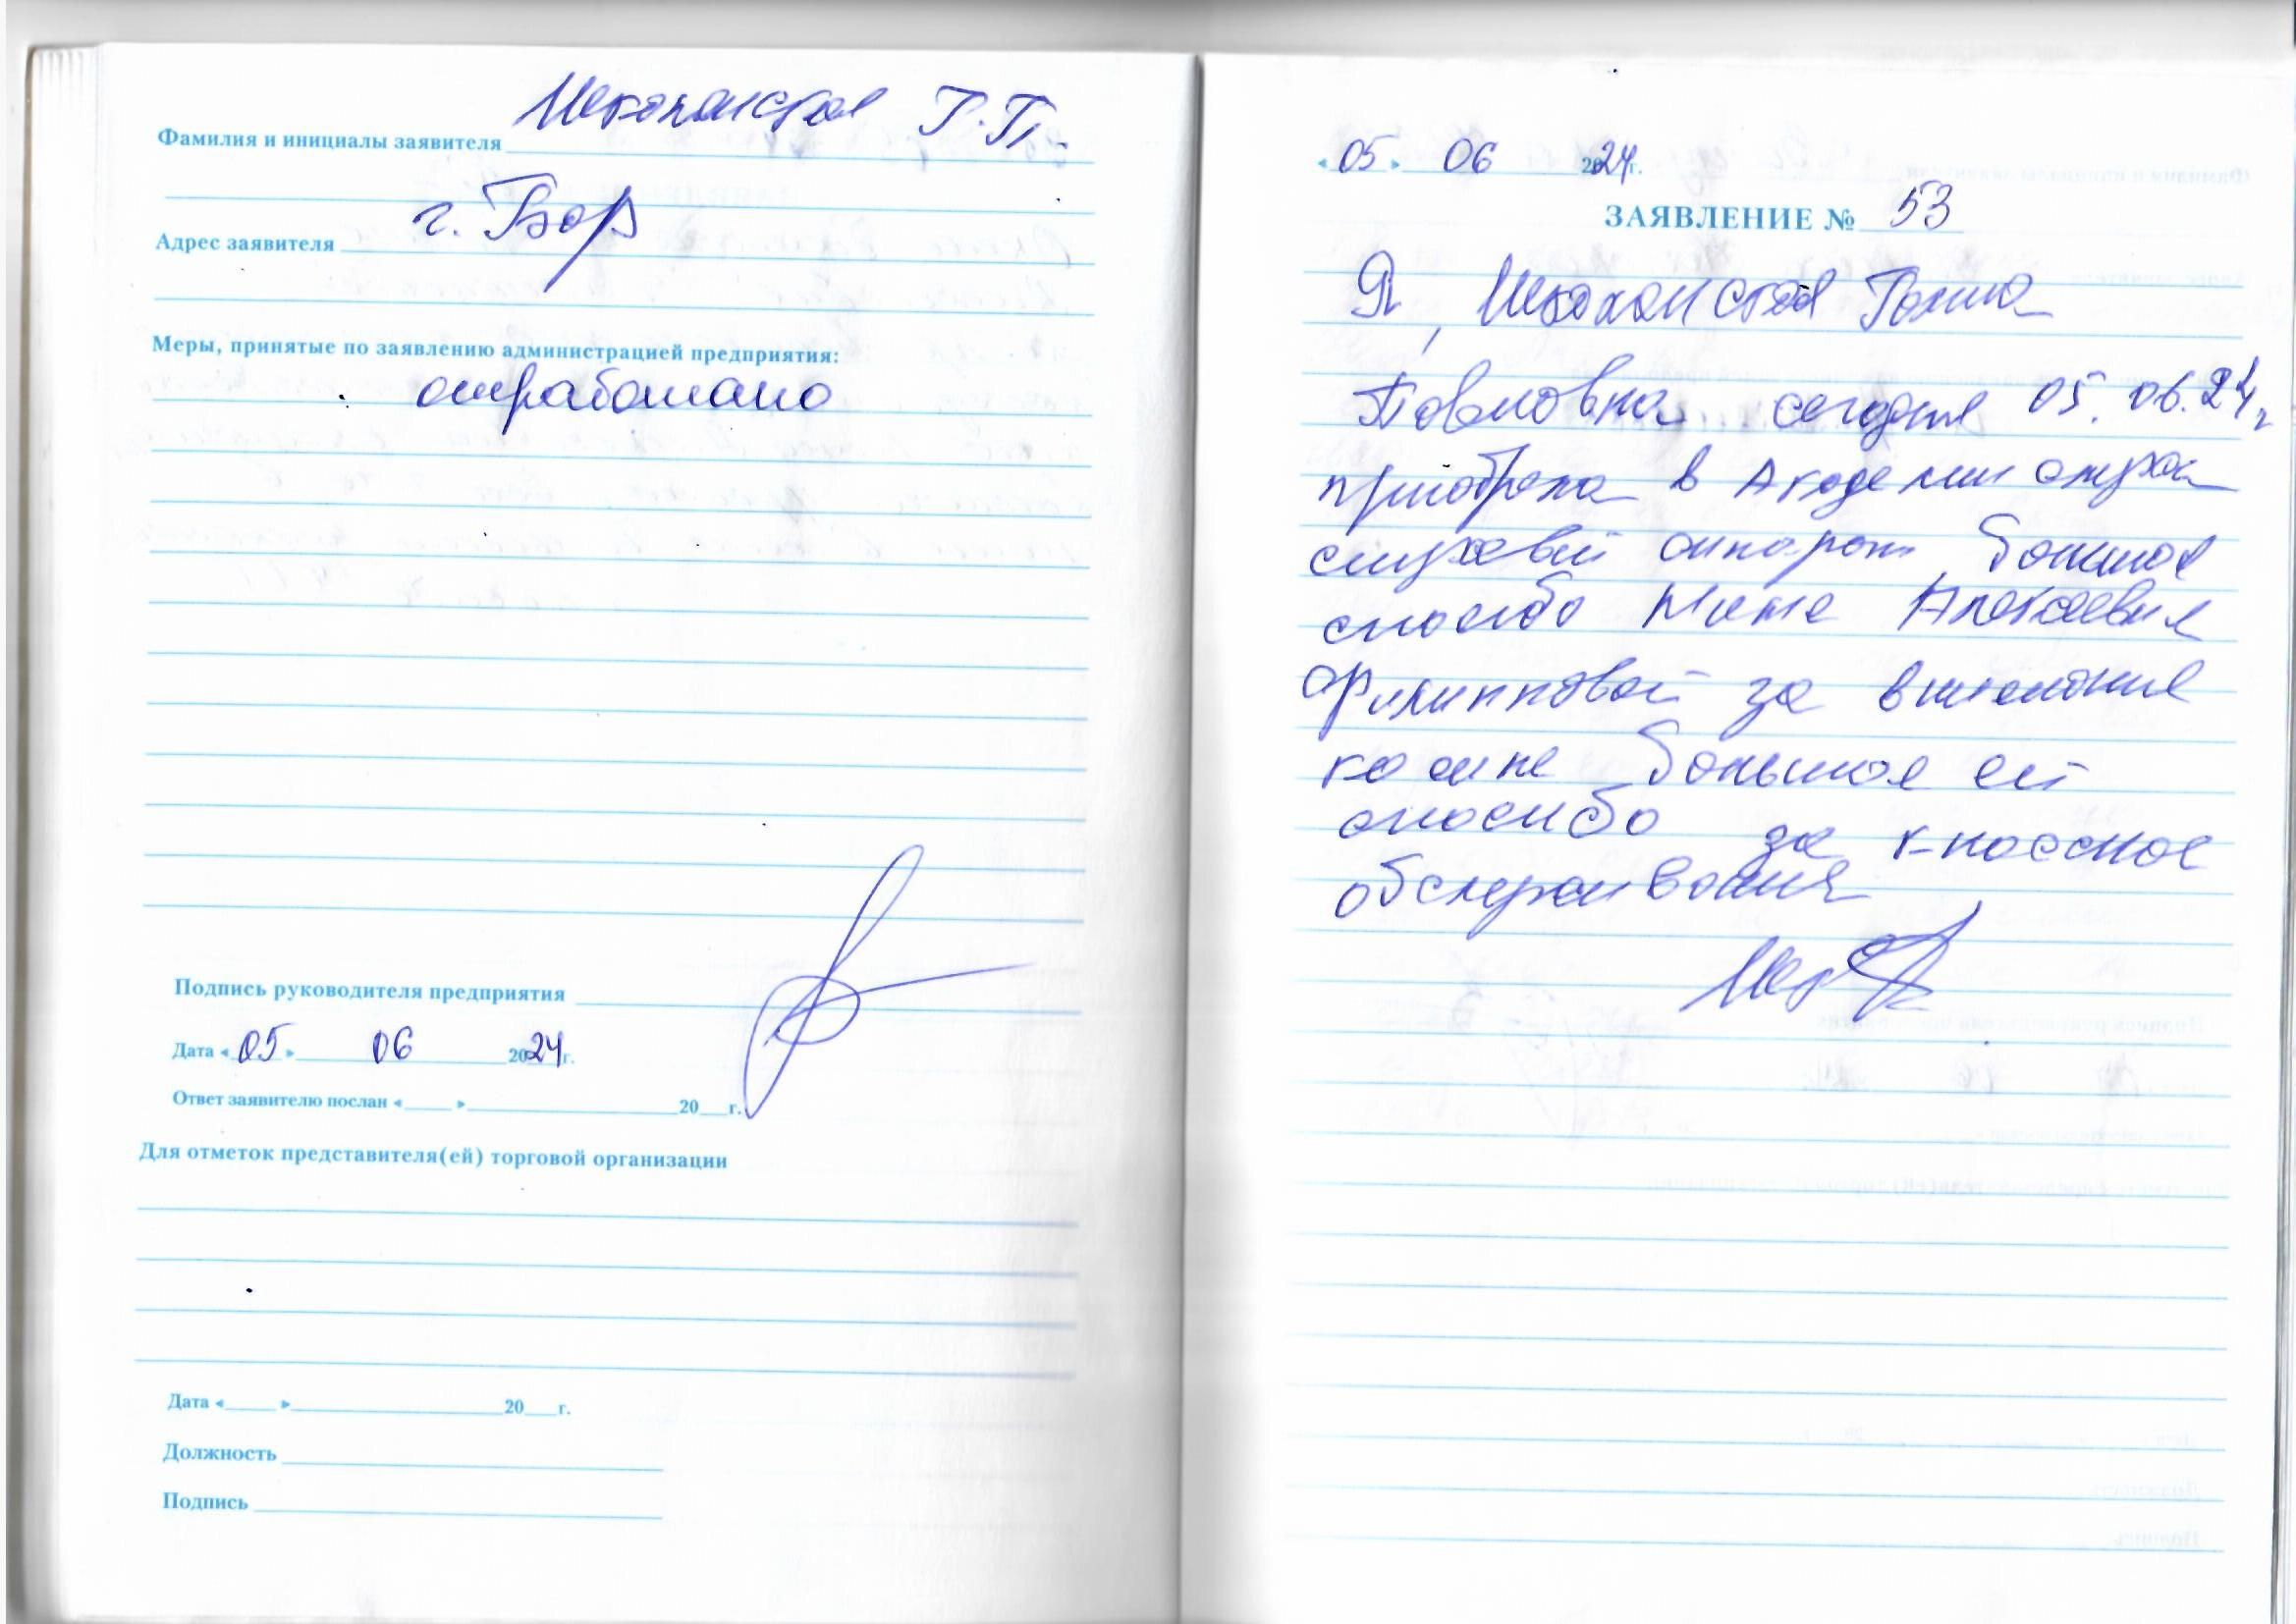 Фамилия и инициалы заявителя Г.П.
Адрес заявителя г. Бор
Меры, принятые по заявлению администрацией предприятия:
отработано
Подпись руководителя предприятия
Дата «05» 06 2024г.
Ответ заявителю послан «____»____________20___г.
Для отметок представителя(ей) торговой организации
Дата «____»____________20___г.
Должность
Подпись
«05» 06 2024г.
ЗАЯВЛЕНИЕ № 53
Я, Галина
Павловна сегодня 05.06.24г
приобрела в Академии слуха
слуховой аппарат, большое
спасибо Алексеевне
Филипповой за внимание
ко мне большое ей
спасибо за классное
обслуживание